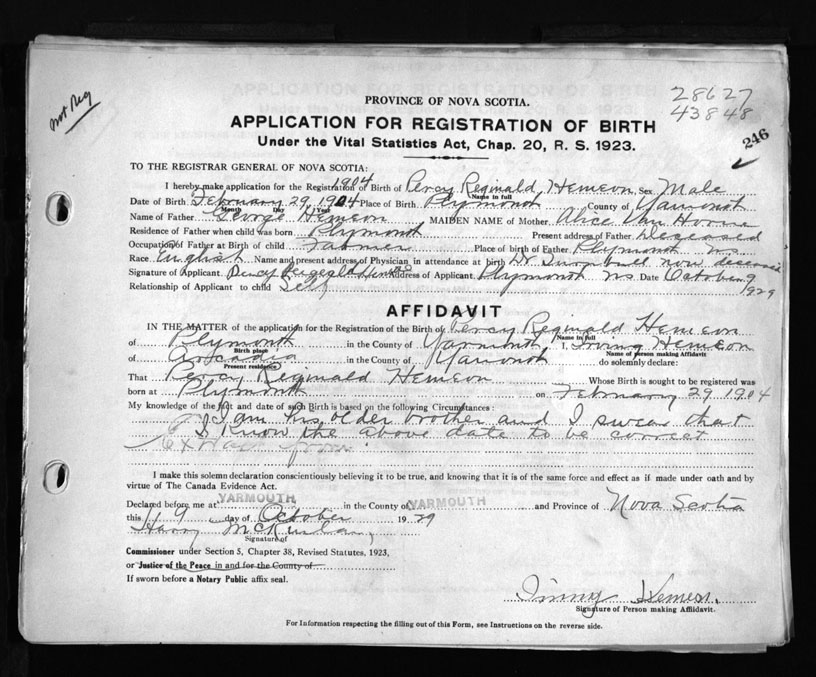 not Reg
28627
43848
246
PROVINCE OF NOVA SCOTIA.
APPLICATION FOR REGISTRATION OF BIRTH
Under the Vital Statistics Act, Chap. 20, R. S. 1923.
TO THE REGISTRAR GENERAL OF NOVA SCOTIA:
1904
I hereby make application for the Registration of Birth of Percy Reginald Hemeon Sex Male
Name in full
Date of Birth February 29, 1904 Place of Birth Plymouth County of Yarmouth
Month Day Year
Name of Father George Hemeon MAIDEN NAME of Mother Alice Van Horne
Residence of Father when child was born Plymouth Present address of Father Deceased
Occupation of Father at Birth of child Farmer Place of birth of Father Plymouth NS
Race English Name and present address of Physician in attendance at birth Dr Turnbull now deceased
Signature of Applicant Percy Hemeon Address of Applicant Plymouth NS Date October 9
1929
Relationship of Applicant to child Self
AFFIDAVIT
IN THE MATTER of the application for the Registration of the Birth of Percy Reginald Hemeon
Name in full
of Plymouth in the County of Yarmouth, I, Irving Hemeon
Birth place
Name of person making Affidavit
of Arcadia in the County of Yarmouth do solemnly declare:
Present residence
That Percy Reginald Hemeon Whose Birth is sought to be registered was
born at Plymouth on February 29 1904
My knowledge of the fact and date of such Birth is based on the following Circumstances:
I am his older brother and I swear that
I know the above date to be correct
I make this solemn declaration conscientiously believing it to be true, and knowing that it is of the same force and effect as if made under oath and by
virtue of The Canada Evidence Act.
Declared before me at YARMOUTH in the County of YARMOUTH and Province of Nova Scotia
this 9 day of October 1929
Harry McKinlay
Signature of
Commissioner under Section 5, Chapter 38, Revised Statutes, 1923,
or Justice of the Peace in and for the County of
If sworn before a Notary Public affix seal.
Irving Hemeon.
Signature of Person making Affidavit.
For Information respecting the filling out of this Form, see Instructions on the reverse side.